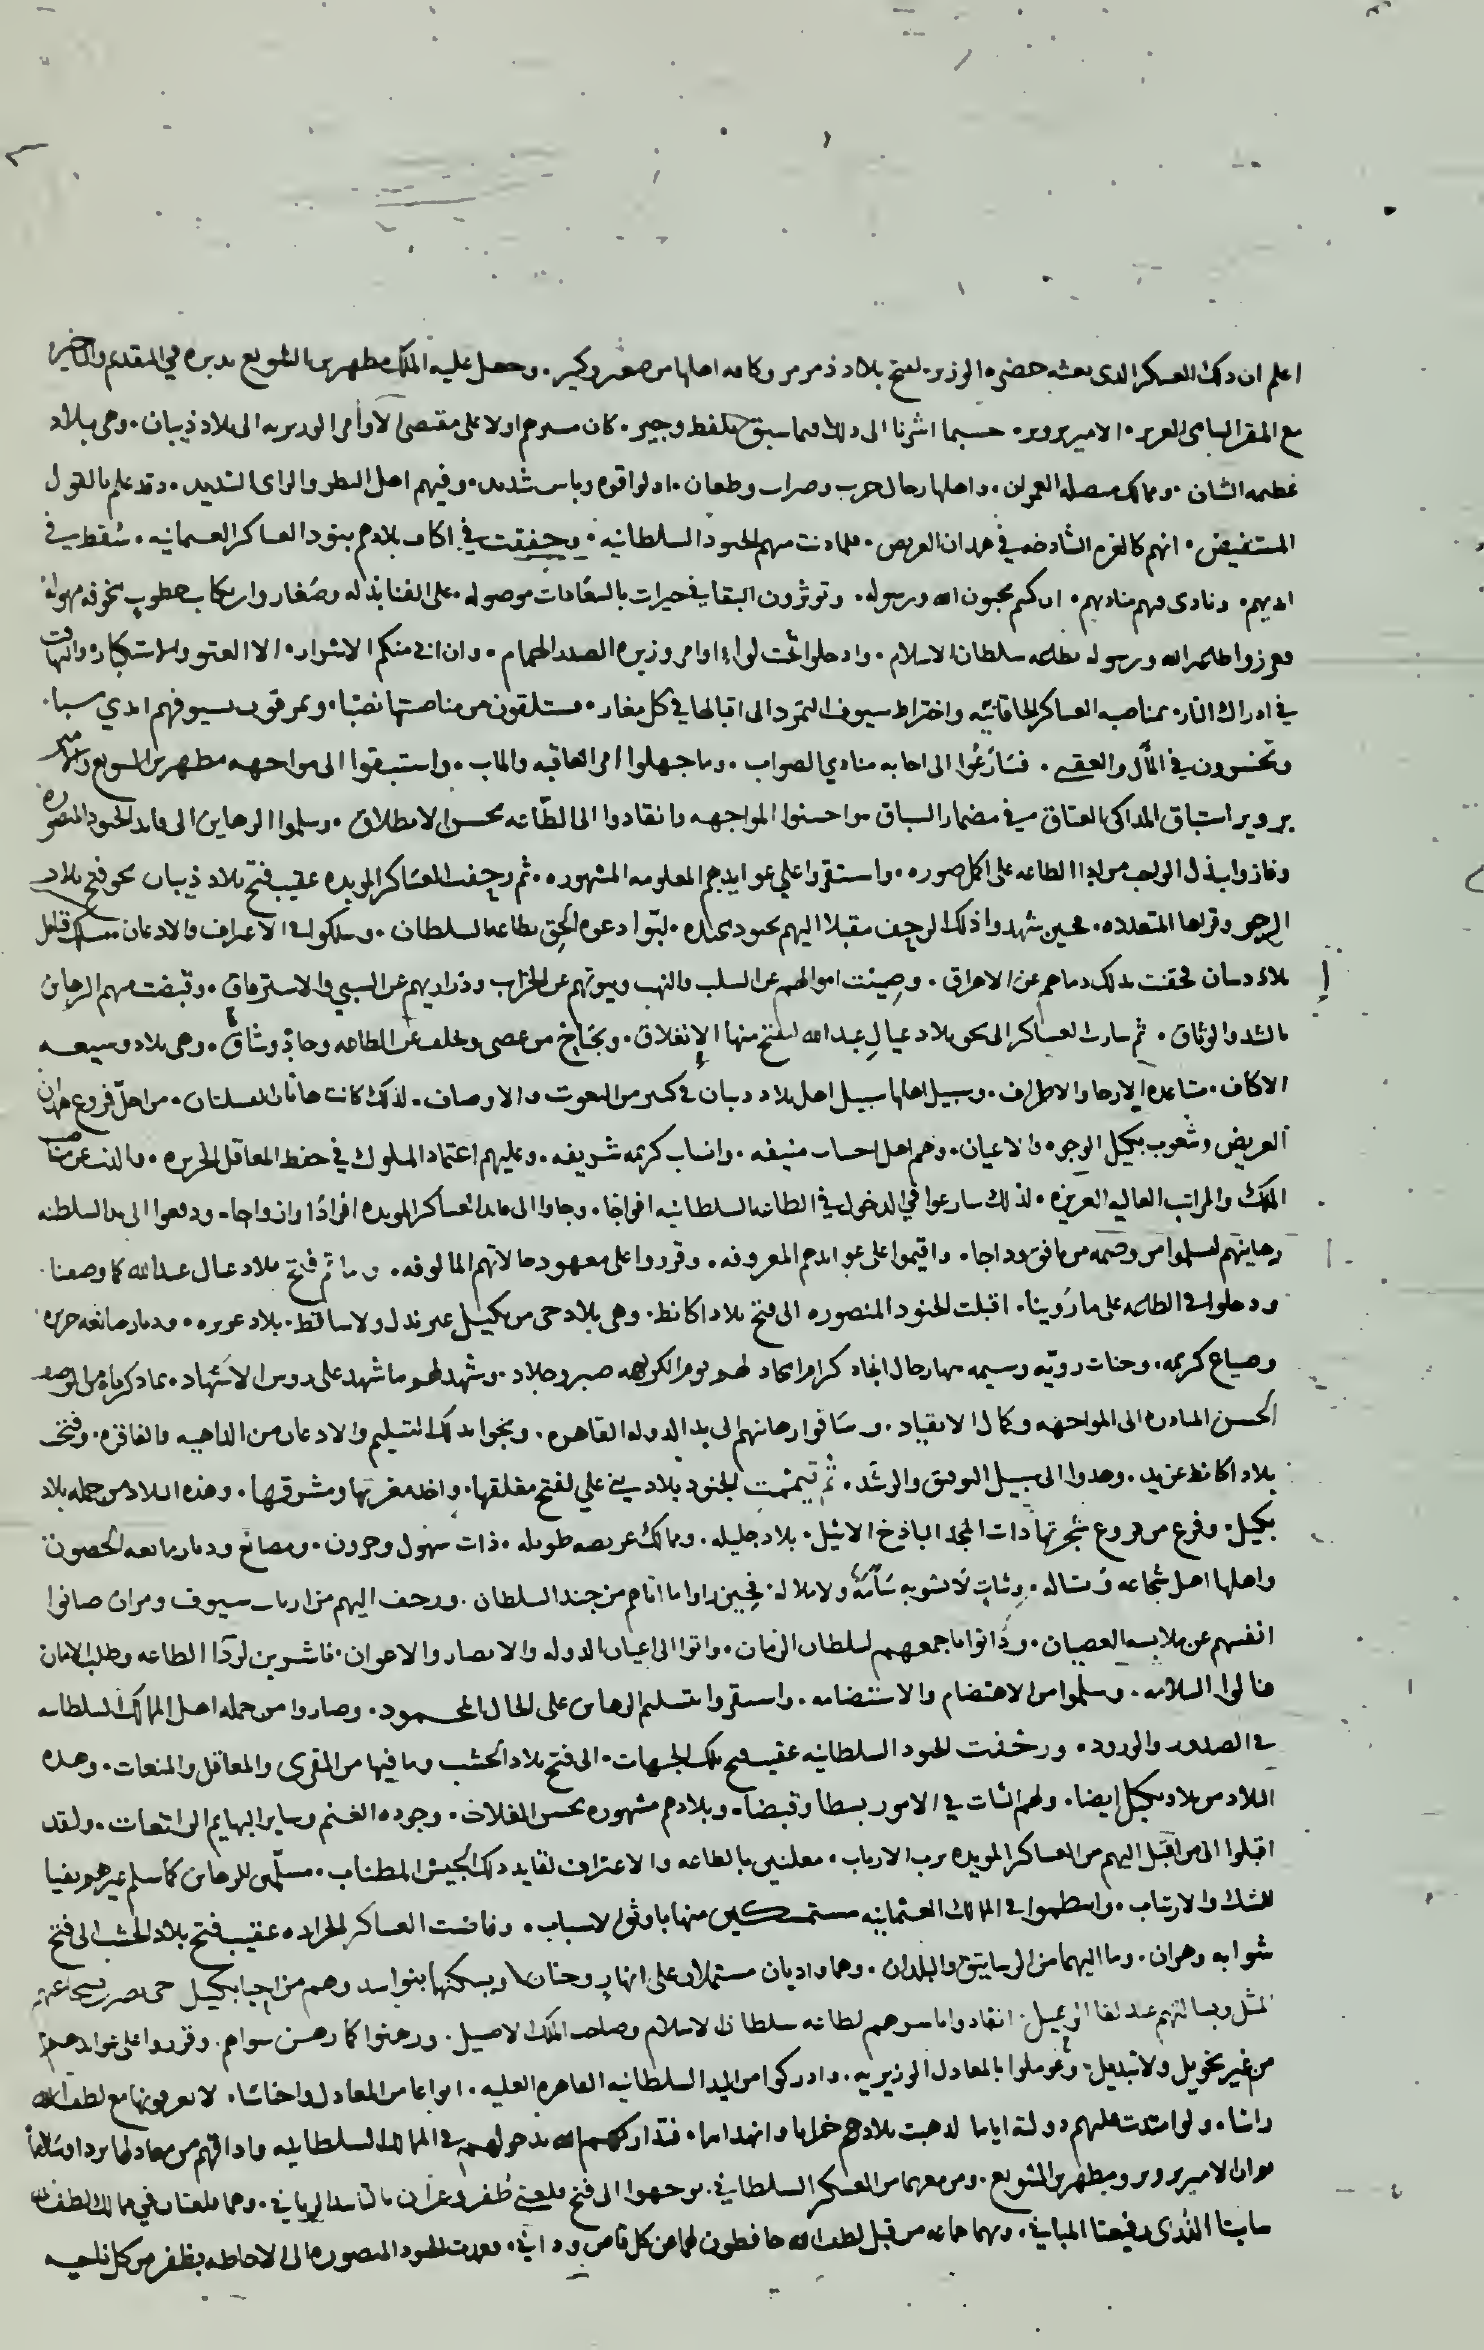 اعلم ان ذلك العسكر الذى بعثه حضره الوزير لفتح بلاد ذمرمر وكافه اهلها من صغير وكبير وجعل عليه الملك مطهر بن الشويع مدبره في التقديم والتاخير
مع المقر السامى العزيز الامير برويز حسبما اشرنا الى ذلك فيما سبق بلفظ وجيز كان مسيرهم اولا على مقتضى الاوامر الوزيريه الى بلاد ذيبان وهى بلاد
عظيمه الشان وممالك متصله العمران واهلها رجال حرب وضراب وطعان اولوا قوه وباس شديد وفيهم اهل النظر والراى السديد وقد علم بالقول
المستفيض انهم كالغره الشادخه في همدان العريض فلما دنت منهم الجنود السلطانيه وخفقت في اكناف بلادهم بنود العساكر العثمانيه سُقط في
ايديهم ونادى فيهم مناديهم ان كنتم تحبون الله ورسوله وتوثرون البقا في خيرات بالسعادات موصوله على الفنا بذله وصغار وارتكاب خطوب مخوفه مهوله
ففروا الى امر الله ورسوله بطاعه سلطان الاسلام وادخلوا تحت لواء اوامر وزيره الصدر الهمام وان ابى منكم الاشرار الا العتو والاستكبار والتهافت
في ادراك النار بمناصبه العساكر الخاقانيه واختراط سيوف التمرد الى اقبالها في كل مغار فستلقون من مناصبتها نصبا وتمزقون بسيوفهم ايدي سبا
وتخسرون في المآل والعقبى فسارعوا الى اجابه منادي الصواب وما جهلوا امر العاقبه والماب واستبقوا الى مواجهه مطهر بن الشويع والامير
برويز استباق المذاكى العتاق في مضمار السباق فاحسنوا المواجهه وانقادوا الى الطاعه بحسن الانطلاق وسلموا الرهاين الى قايد الجنود المنصوره
وفازوا ببذل الواجب من اداء الطاعه على اكمل صوره واستقروا علي عوايدهم المعلومه المشهوره ثم زحفت العساكر المويده عقيب فتح بلاد ذيبان نحو فتح بلاد
وقراها المتعدده فحين شهدوا ذلك الزحف مقبلا اليهم بجنود مجنده لبوا دعوه الحق بطاعه السلطان وسلكوا في الاعتراف والاذعان مسلك قبايل
بلاد ذيبان فحقنت بذلك دماهم عن الاهراق وصينت اموالهم عن السلب والنهب وبيوتهم عن الخراب وذراريهم عن السبي والاسترقاق وقبضت منهم الرهاين
بالشد والوثاق ثم سارت العساكر الى نحو بلاد عيال عبد الله لتفتح منها الانغلاق وتجتاح من عصى وتخلف عن الطاعه وحاد وشاق وهى بلاد وسيعه
الاكناف متباعده الارجا والاطراف وسبيل اهلها سبيل اهل بلاد ذيبان في كثير من النعوت والاوصاف لذلك كانت هاتان القبيلتان من اجل فروع همدان
العريض وشعوب بكيل الوجوه والاعيان وهم اهل احساب منيفه وانساب كريمه شريفه وعليهم اعتماد الملوك في حفظ المعاقل الحريزه والذب عن مناصب
الملك والمراتب العاليه العزيزه لذلك سارعوا في الدخول في الطاعه السلطانيه افواجا وجاوا الى قايد العساكر المويده افرادًا وازواجا ودفعوا الى يد السلطنه
رهاينهم ليسلموا من وصمه من نافق وداجا واقيموا على عوايدهم المعروفه وقرروا على معهود حالاتهم المالوفه ولما تم فتح بلاد عيال عبد الله كما وصفنا
ودخلوا في الطاعه على ما روينا اقبلت الجنود المنصوره الى فتح بلاد اكانط وهى بلاد حى من بكيل غير نذل ولا ساقط بلاد عزيزه وديار مانعه حريزه
وضياع كريمه وجنات رويه وسيمه بها رجال انجاد كرام امجاد لهم يوم الكريهه صبر وجلاد وشهد لهم ما شهد على روس الاشهاد بما ذكرناه من الوصف
الحسن المبادره الى المواجهه وكمال الانقياد وساقوا رهاينهم الى يد الدوله القاهره ونجوا بذلك التسليم والاذعان من الداهيه والفاقره وفتحت
بلاد اكانط عن يد وهدوا الى سبيل التوفيق والرشد ثم تيممت الجنود بلاد بني علي لفتح مغلقها واخذ مغربها ومشرقها وهذه البلاد من جمله بلاد
بكيل وفرع من فروع شجرتها ذات المجد الباذخ الاثيل بلاد جليله وممالك عريضه طويله ذات سهول وحزون ومصانع وديار مانعه الحصون
واهلها اهل شجاعه وبساله وثبات لا يشوبه سآمه ولا ملاله فحين راوا ما اتاهم من جند السلطان وزحف اليهم من ارباب سيوف ومران صانوا
انفسهم عن ملابسه العصيان ودانوا باجمعهم لسلطان الزمان واتوا الى اعيان الدوله والانصار والاعوان ناشرين لوآء الطاعه وطلب الامان
فنالوا السلامه وسلموا من الاهتضام والاستضامه واستقروا بتسليم الرهاين على الحال المحمود وصاروا من جمله اهل الممالك السلطانيه
في الصدور والورود وزحفت الجنود السلطانيه عقيب فتح تلك الجهات الى فتح بلاد الخشب وما فيها من القرى والمعاقل والمنعات وهذه
البلاد من بلاد بكيل ايضا ولهم الثبات في الامور بسطا وقبضا وبلادهم مشهوره بحسن الغلات وجوده الغنم وساير البهايم الراتعات ولقد
اقبلوا الى من اقبل اليهم من العساكر المويده برب الارباب معلنين بالطاعه والاعتراف لقايد ذلك الجيش المطناب مسلمين للرهاين كما سلم غيرهم نفيا
للشك والارتياب وانتظموا في الممالك العثمانيه مستمسكين منها باوثق الاسباب وفاضت العساكر الجراره عقيب فتح بلاد الخشب الى فتح
شوابه وهران وما اليهما من الرساتيق والبلدان وهما واديان مشتملان على انهار وجنان ويسكنها بنو اسد وهم من احيا بكيل حى يضرب بشجاعتهم
المثل وبسالتهم عند لقا الرعيل انقادوا باسرهم لطاعه سلطان الاسلام وصاحب الملك الاصيل ورهنوا كما رهن سواهم وقرروا على عوايدهم
من غير تحويل ولا تبديل وعوملوا بالمعادل الوزيريه وادركوا من اليد السلطانيه القاهره العليه انواعا من المعادل واجناسا لا يعرفونها مع لطف الله
راسا ولو امتدت عليهم دولته اياما لذهبت بلادهم خرابا وانهداما فتداركهم الله بدخولهم في الممالك السلطانيه واذاقهم من معادلها بردا وسلاما
ثم ان الامير برويز ومطهر بن الشويع ومن معهما من العسكر السلطاني توجهوا الى فتح قلعتي ظفر وعزان بالتاييد الربانى وهما قلعتان في ممالك لطف الله
سامِيتا الذرى رفيعتا المباني وبهما جماعه من قبل لطف الله حافظون لهما من كل قاص ودانى فعمدت الجنود المنصوره الى الاحاطه بظفر من كل ناحيه